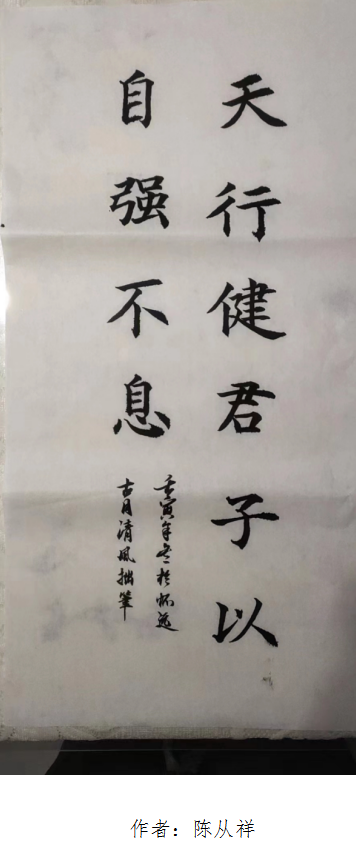 天行健君子以
自强不息
壬寅年冬於怀远
古月清风拙筆
作者：陈从祥